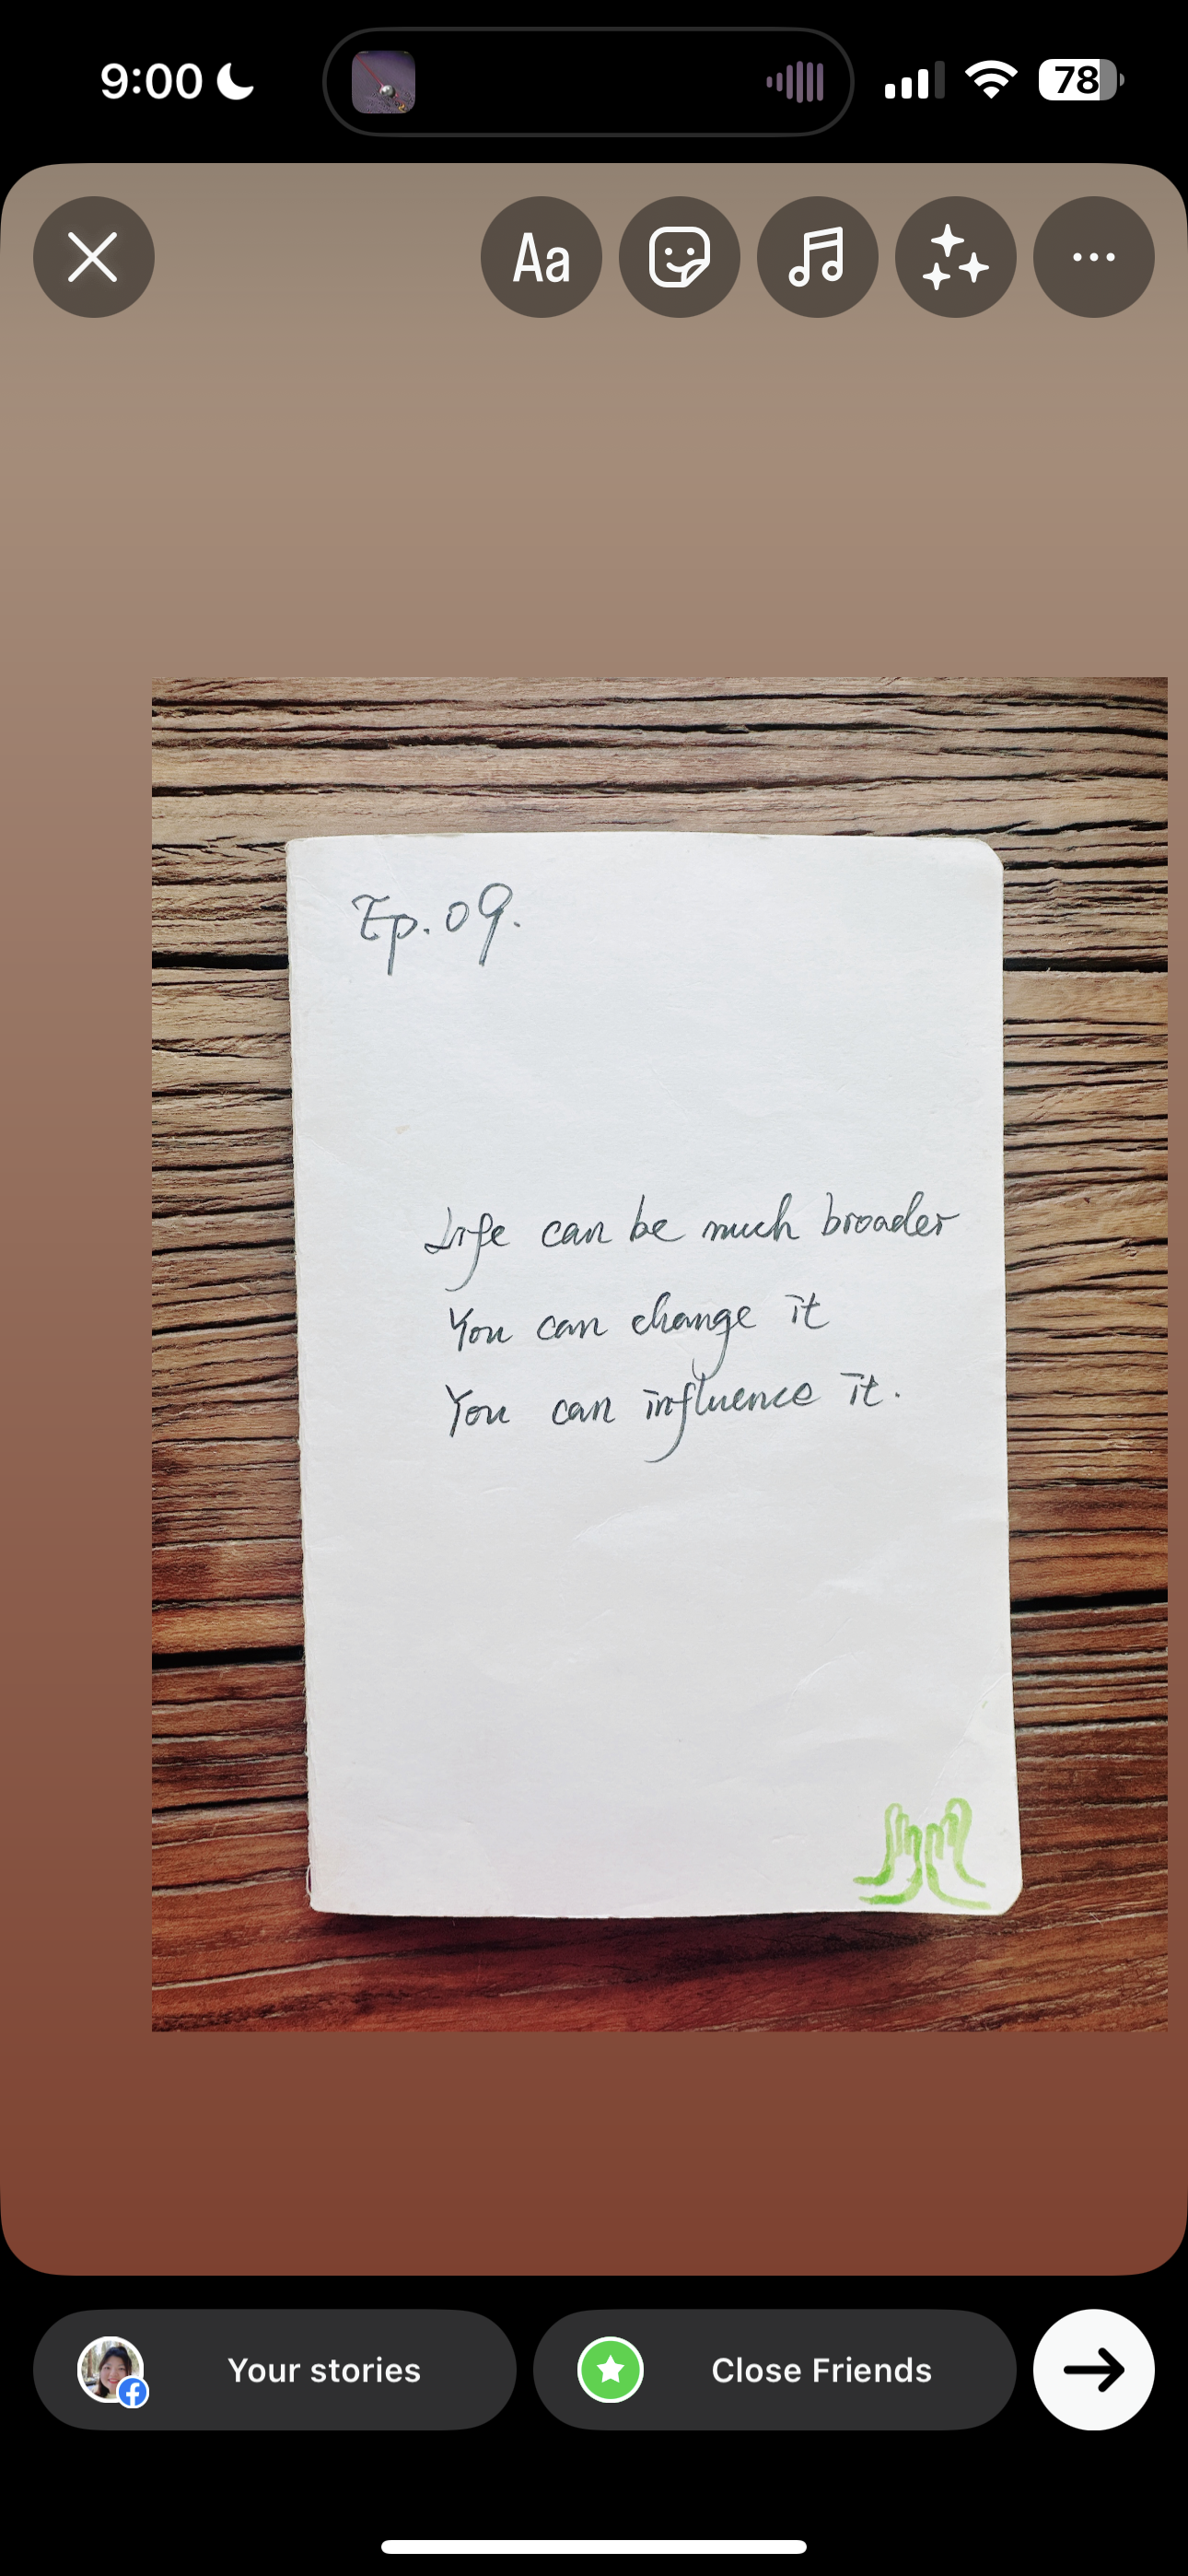 9:00
78
Aa
Ep. 09.
Life can be much broader
You can change it
You can influence it.
Your stories
Close Friends